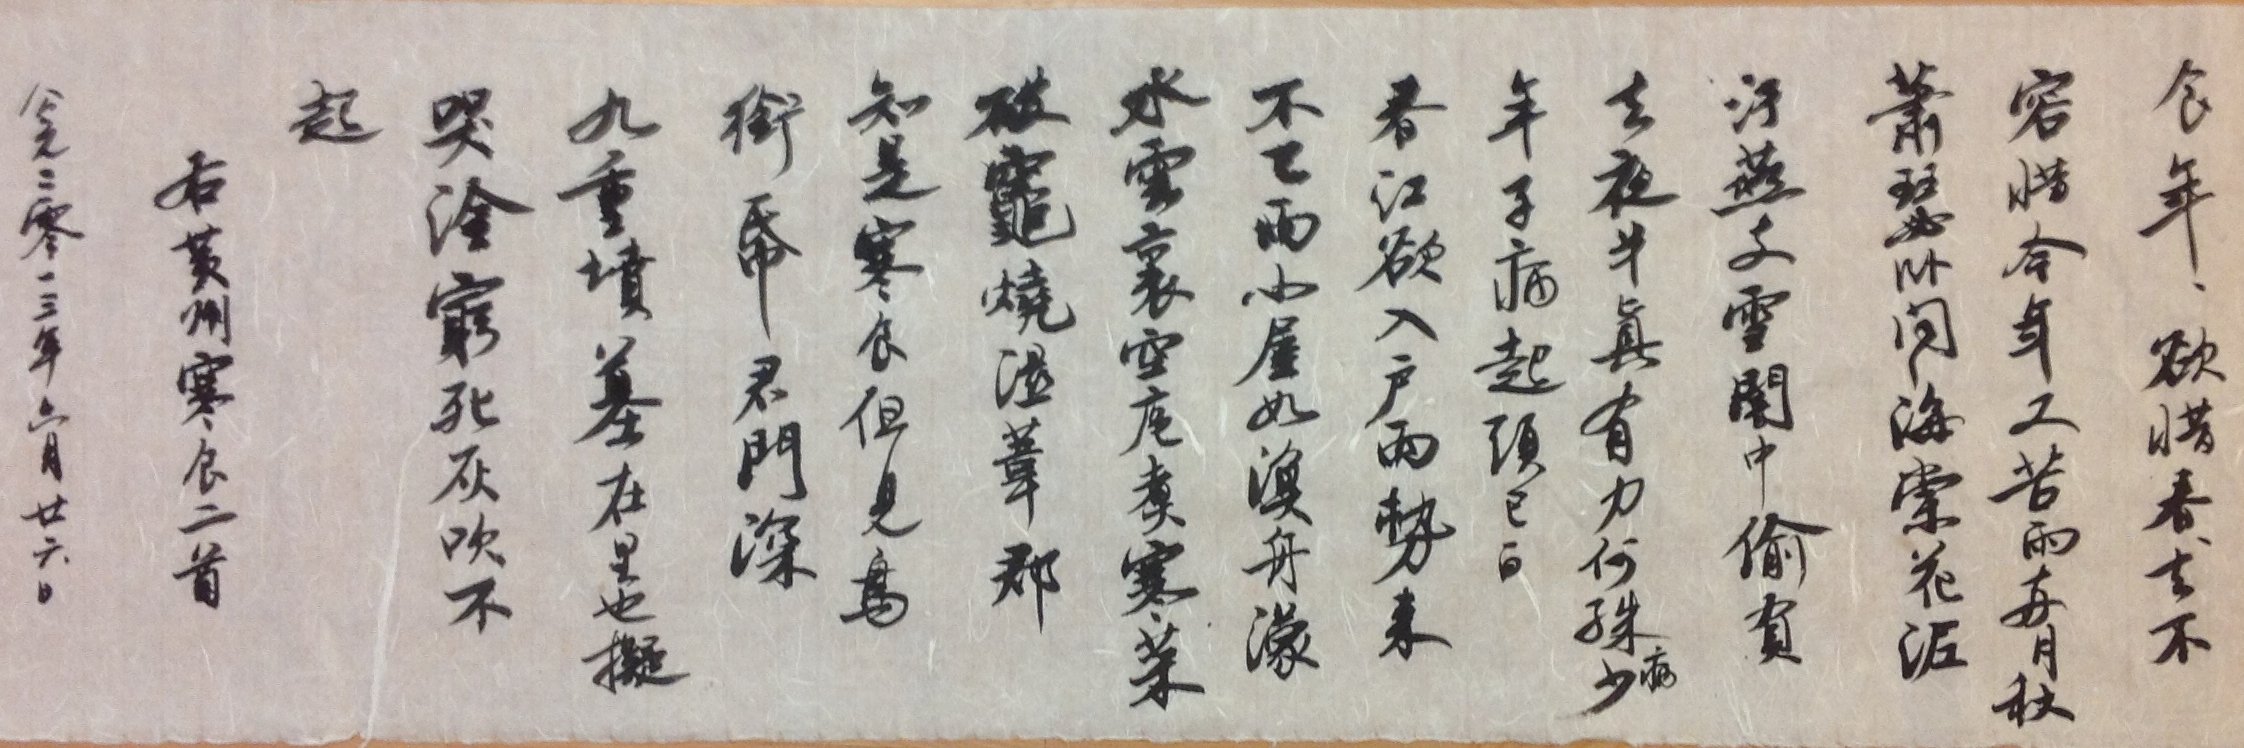 食年、欲惜春、去不
容惜今年又苦雨兩月秋
蕭瑟臥聞海棠花泥
汙燕支雪闇中偷負
去夜半真有力何殊少病
年子病起頭已白
春江欲入戶雨勢來
不已雨小屋如漁舟濛
水雲裏空庖煮寒菜
破竈燒濕葦那
知是寒食但見烏
銜帋君門深
九重墳墓在里也擬
哭塗窮死灰吹不
起
右黃州寒食二首
公元二零一三年六月廿六日